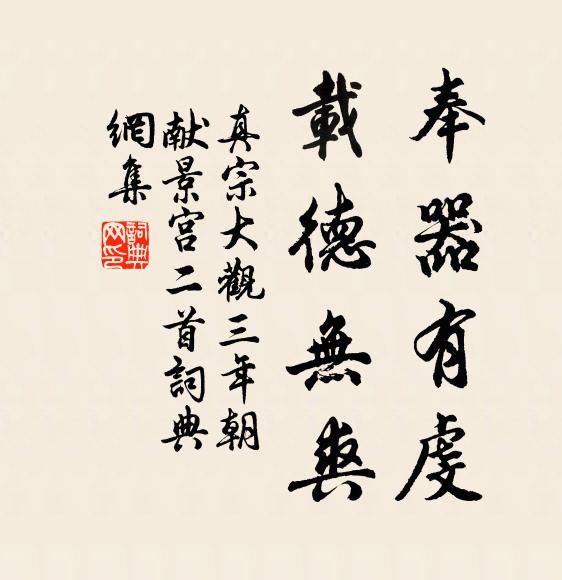 奉器有虔
載德無爽
真宗大觀三年朝
献景宮二首詞典
網集
詞典
网印